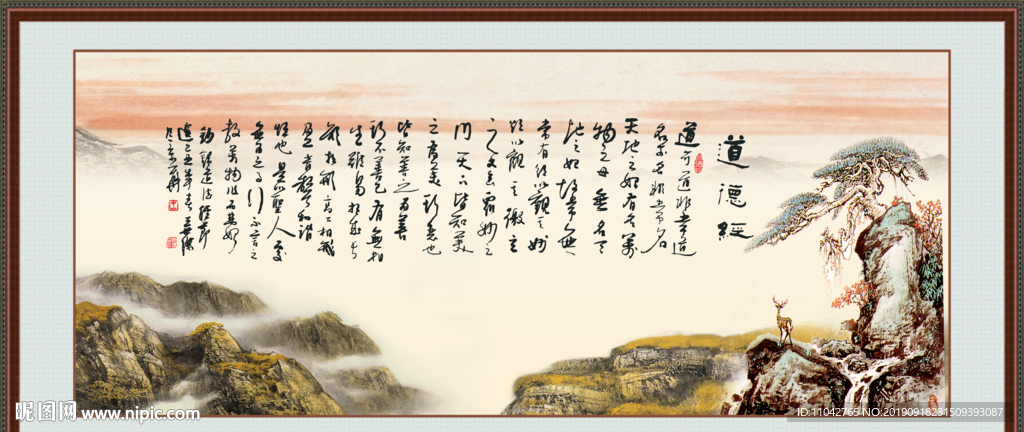 道德經
道可道非常道
名可名非常名
天地之始有名萬
物之母
地之始故常無
常有欲以觀其妙
欲以觀其徼
之又玄眾妙之
門天下皆知美
之為美斯惡也
皆知善之為善
斯不善已有無相
生難易相成長
短相形高下相
音聲相和
恒也是以聖人處
無為之事行不言之
教萬物作
錄道德經
昵图网 www.nipic.com
ID:11042765 NO:20190918231509393087